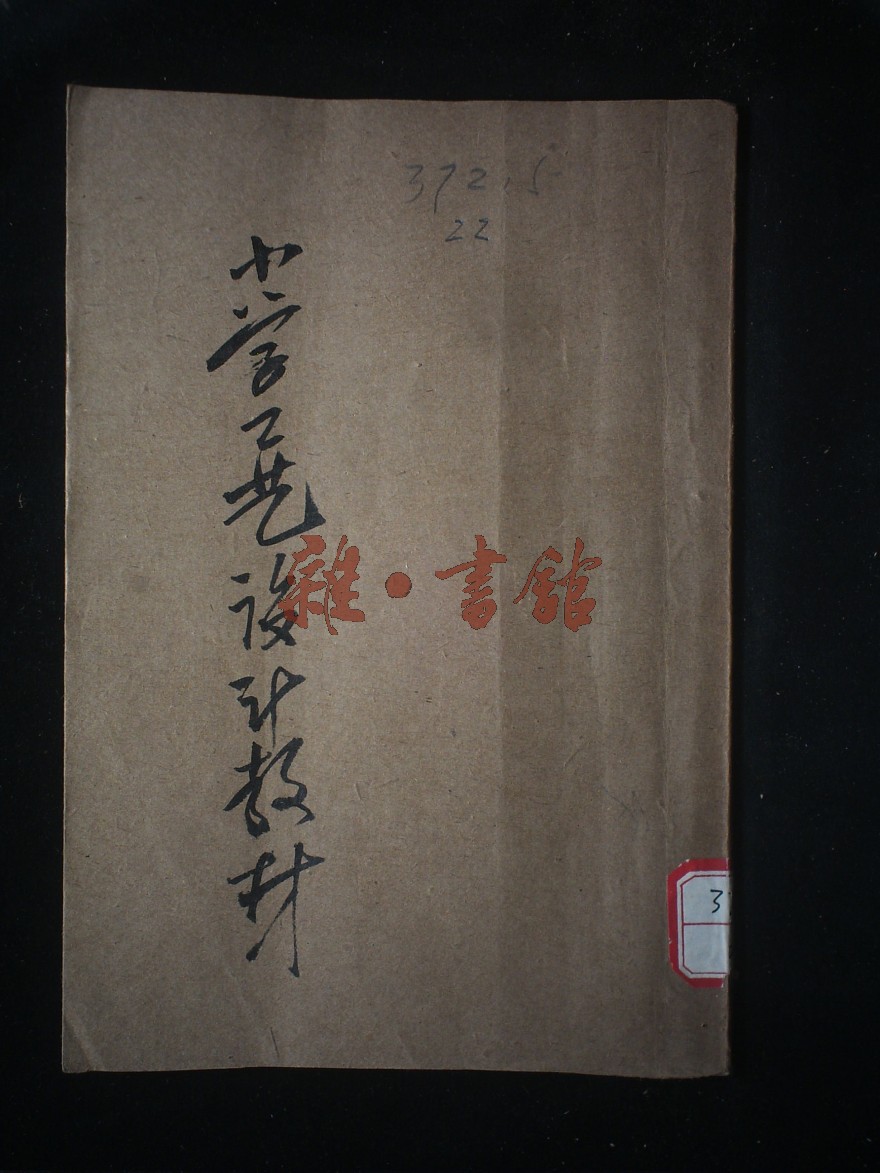 372.5
22
小学工艺设计教材
雜·書館
3